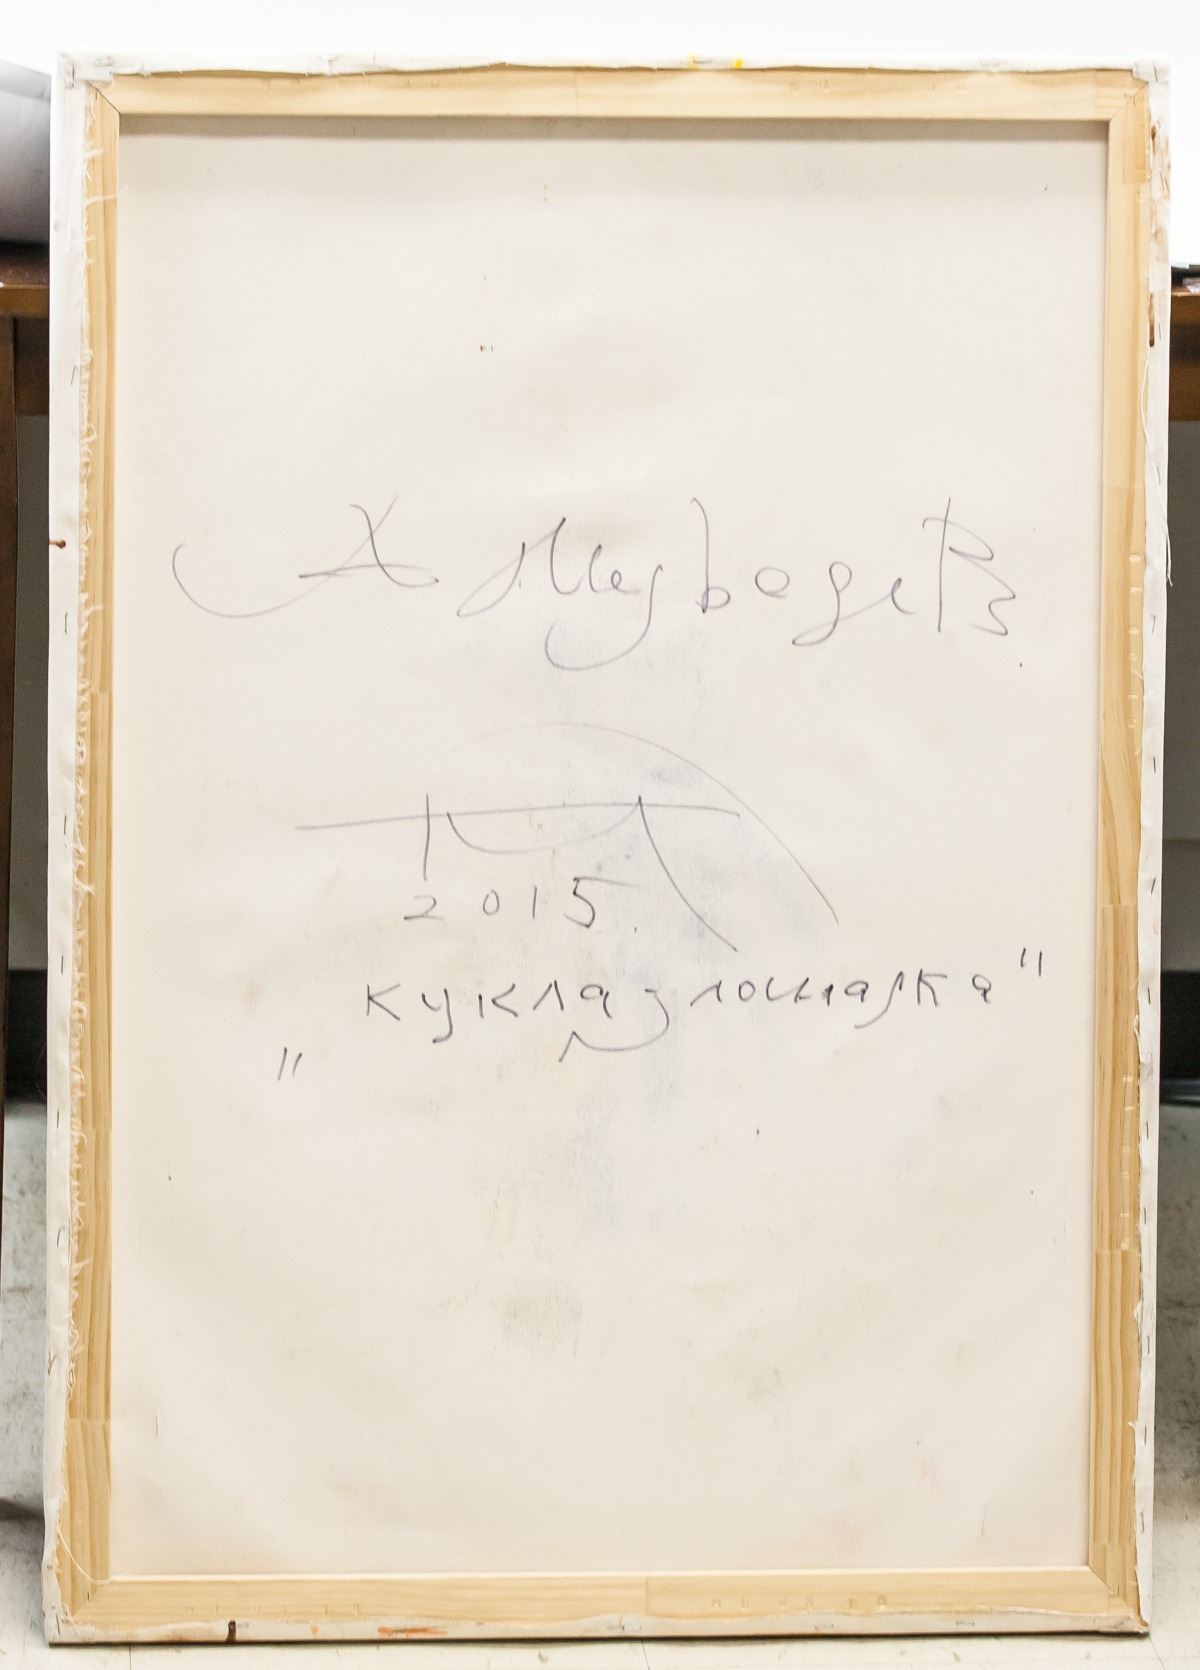 А Медведев.
2015.
"кукла, лошадка"